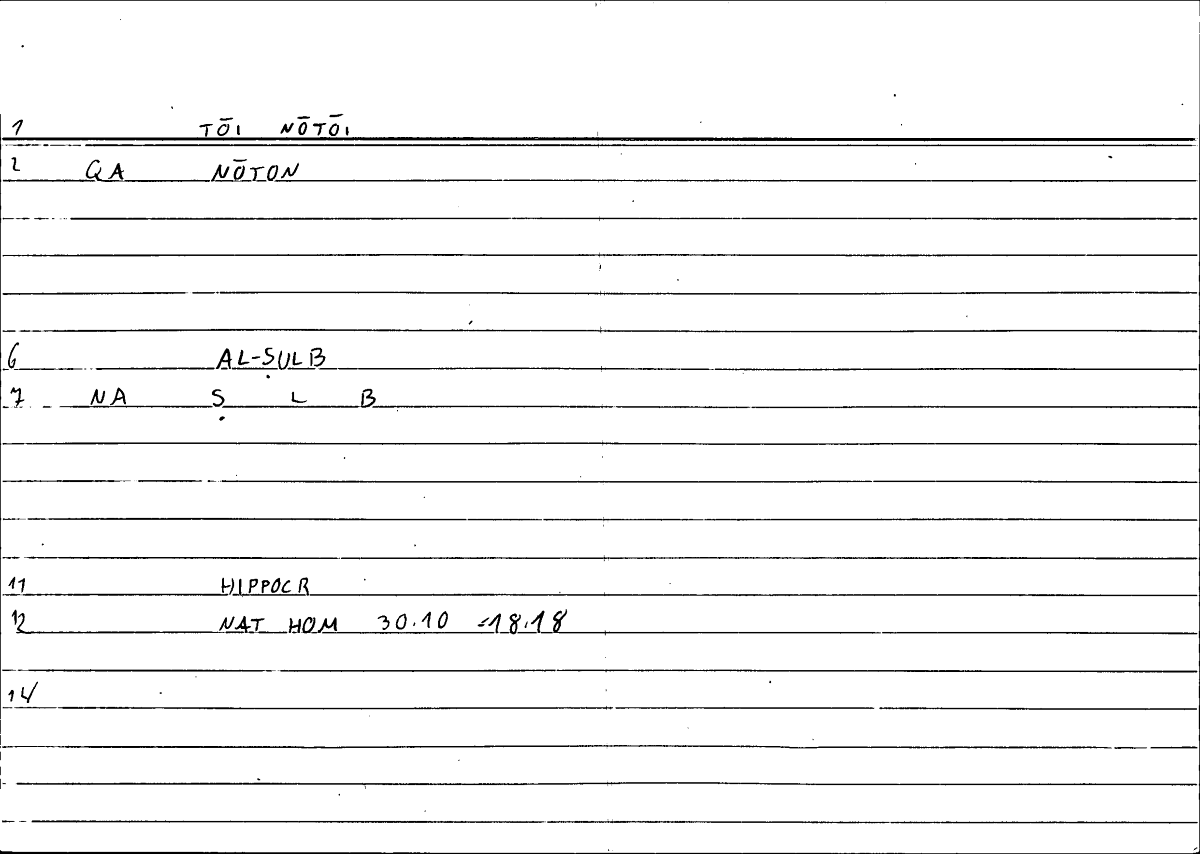 1 TŌI NŌTŌI
2 QA NŌTON
6 AL-ṢULB
7 NA Ṣ L B
11 HIPPOCR
12 NAT HOM 30.10 =18.18
14